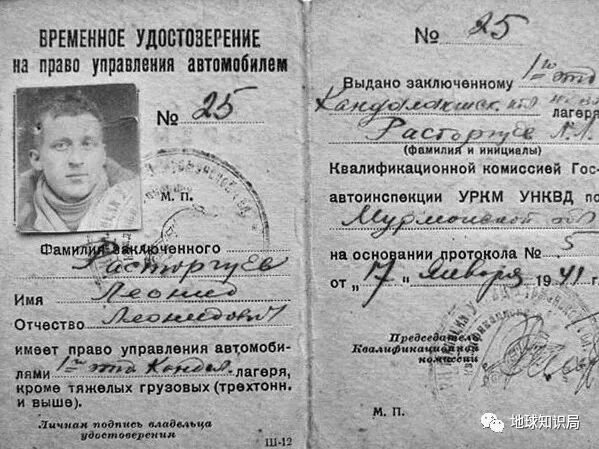 ВРЕМЕННОЕ УДОСТОЗЕРЕНИЕ
на право управления автомобилем
№ 25
М. П.
Фамилия заключенного
Расторгуев
Имя Леонид
Отчество Леонидович
имеет право управления автомоби-
лями 1го отд Кандал. лагеря,
кроме тяжелых грузовых (трехтонн.
и выше).
Личная подпись владельца
удостоверения
Ш-12
№ 25
Выдано заключенному 1го отд
Кандалакшск лагеря
Расторгуев Л.Л.
(фамилия и инициалы)
Квалификационной комиссией Гос-
автоинспекции УРКМ УНКВД по
Мурманской обл
на основании протокола № 5
от „17" января 1941 г.
Председатель
Квалификационной
комиссии
М. П.
地球知识局